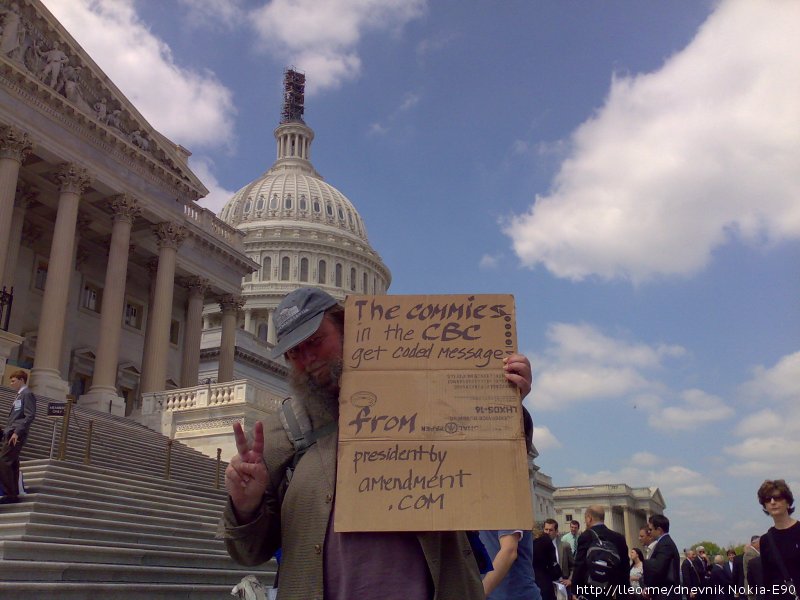 The commies
in the CBC
get coded message
from
presidentby
amendment
.com
LHX05-16
http://lleo.me/dnevnik Nokia-E90